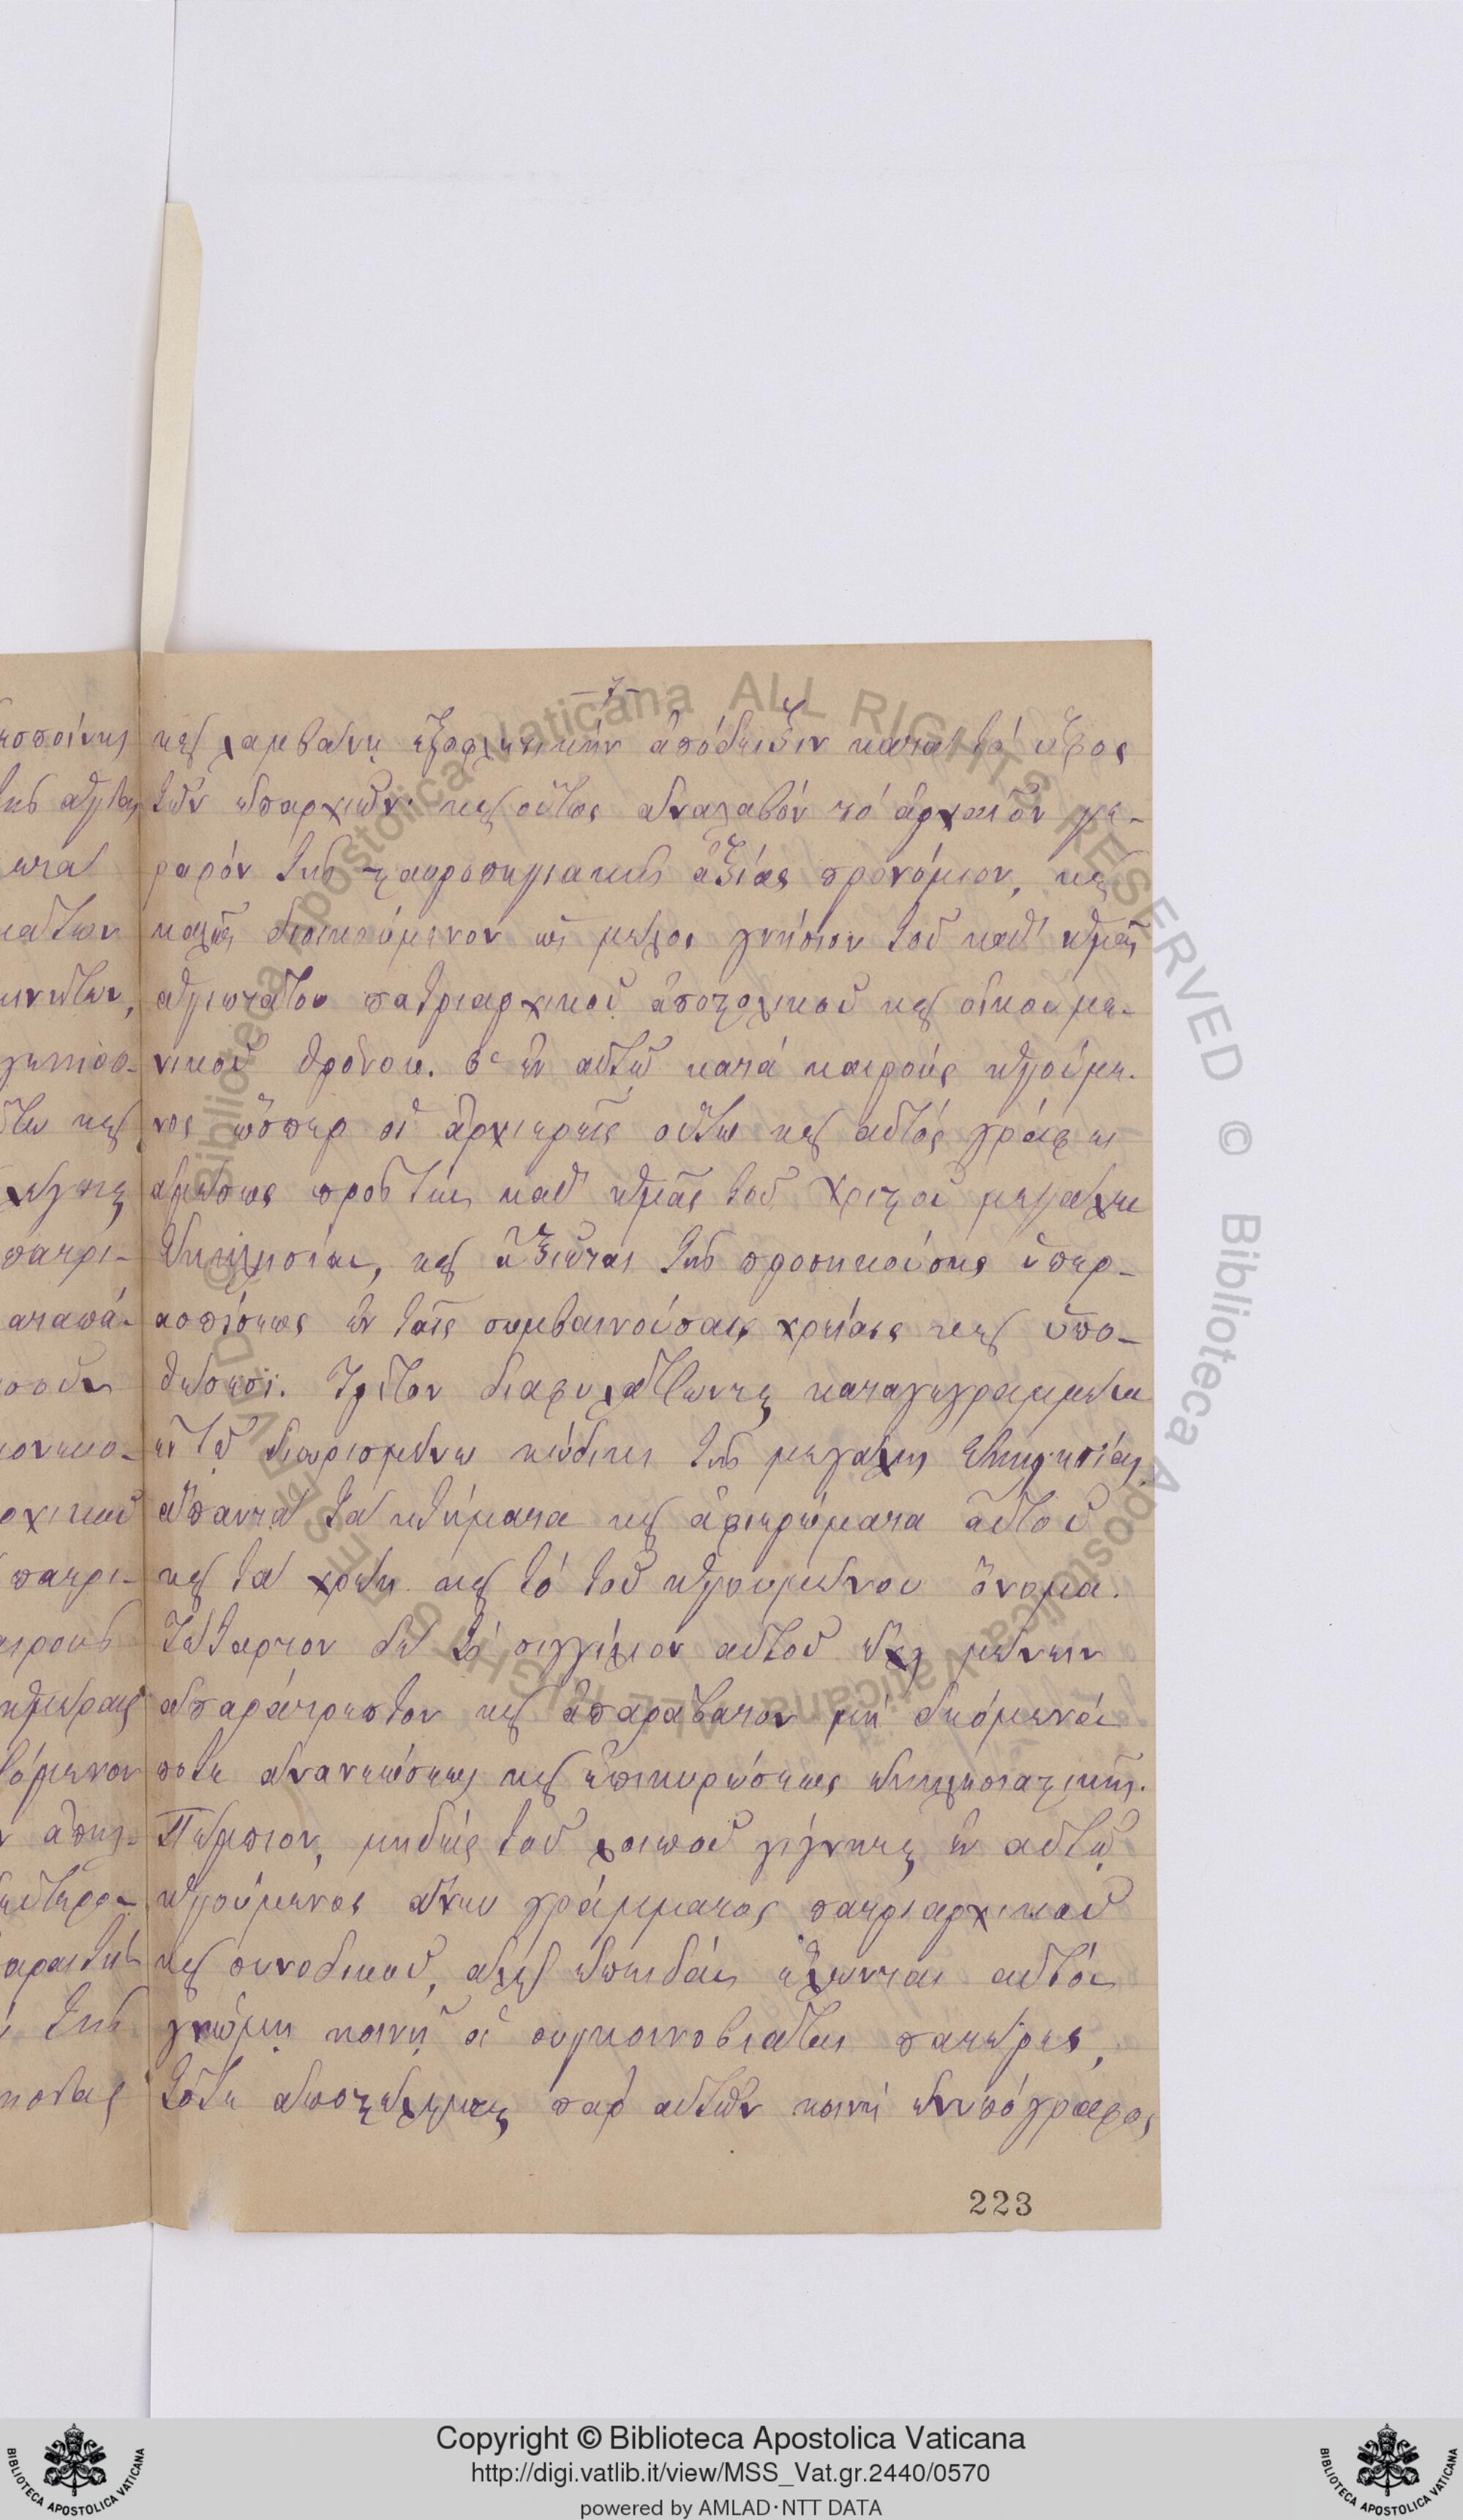 -7-
καὶ λαμβάνῃ ἐξοφλητικὴν ἀπόδειξιν κατὰ τὸ ὕφος
τῶν ἐπαρχιῶν· καὶ οὕτως ἀναλαβὸν τὸ ἀρχαῖον γε-
ραρὸν τῆς σταυροπηγιακῆς ἀξίας προνόμιον, καὶ
καλῶς διοικούμενον ὡς μέλος γνήσιον τοῦ καθ' ἡμᾶς
ἁγιωτάτου πατριαρχικοῦ ἀποστολικοῦ καὶ οἰκουμε-
νικοῦ θρόνου. ὁ ἐν αὐτῷ κατὰ καιροὺς ἡγούμε-
νος ὥσπερ οἱ ἀρχιερεῖς οὕτω καὶ αὐτὸς γράφει
ἀμέσως πρὸς τὴν καθ' ἡμᾶς τοῦ Χριστοῦ μεγάλην
Ἐκκλησίαν, καὶ ἀξιῶται τῆς προσηκούσης ὑπερ-
ασπίσεως ἐν ταῖς συμβαινούσαις χρείαις καὶ ὑπο-
θέσεσι. Τρίτον διαφυλάττωνται καταγεγραμμένα
ἐν τῷ διωρισμένῳ κώδικι τῆς μεγάλης Ἐκκλησίας
ἅπαντα τὰ κτήματα καὶ ἀφιερώματα αὐτοῦ
καὶ τὰ χρέη καὶ τὸ τοῦ ἡγουμένου ὄνομα.
Τέταρτον δὲ τὸ σιγγίλιον αὐτοῦ ἔχῃ μένειν
ἀπαράτρεπτον καὶ ἀπαράβατον μὴ δεόμενόν
ποτε ἀνανεώσεως καὶ ἐπικυρώσεως ἐκκλησιαστικῆς.
Πέμπτον, μηδεὶς τοῦ λοιποῦ γίγνηται ἐν αὐτῷ
ἡγούμενος ἄνευ γράμματος πατριαρχικοῦ
καὶ συνοδικοῦ, ἀλλ' ἐπειδὰν ἕλωνται αὐτὸν
γνώμῃ κοινῇ οἱ συγκοινοβιᾶται πατέρες,
τότε ἀποστέλληται παρ' αὐτῶν κοινὴ ἐνυπόγραφος
223
Copyright © Biblioteca Apostolica Vaticana
http://digi.vatlib.it/view/MSS_Vat.gr.2440/0570
powered by AMLAD·NTT DATA